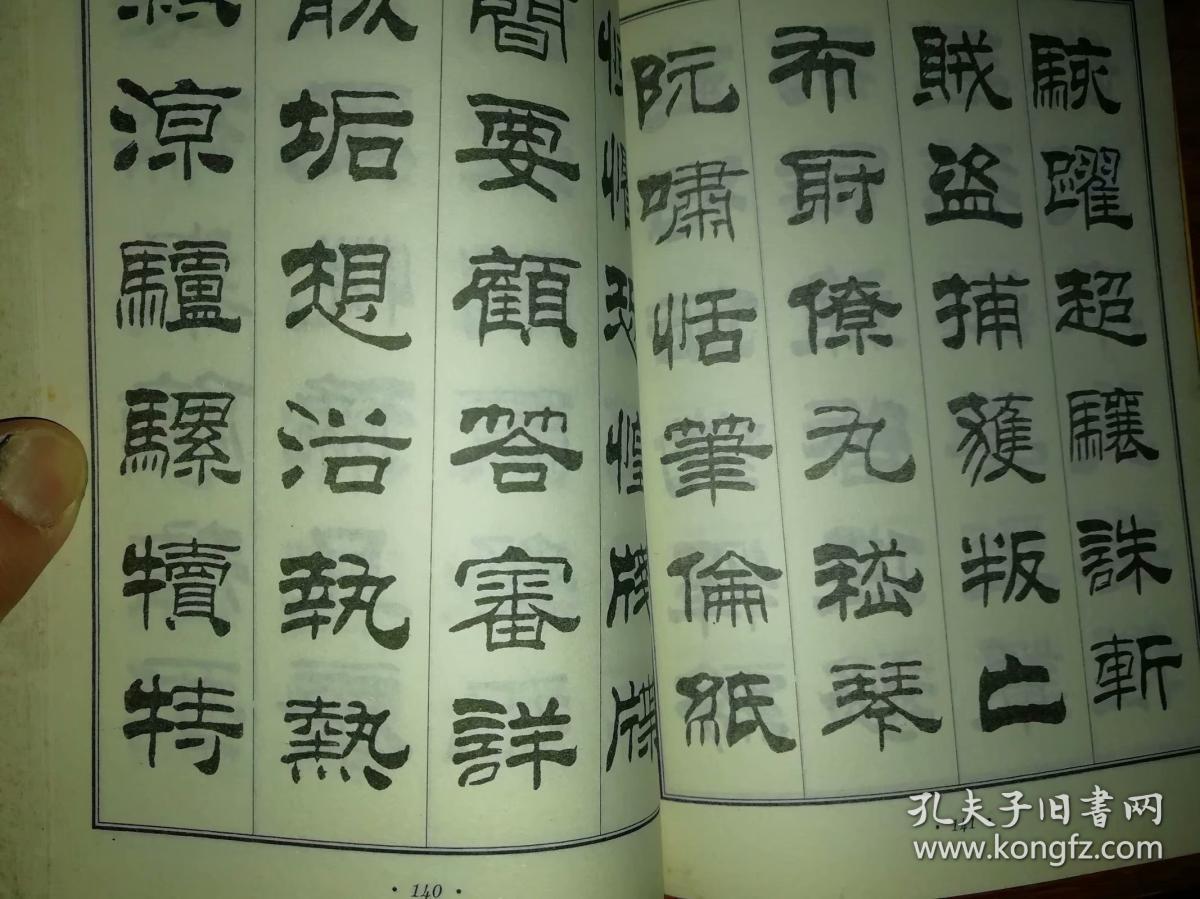 簡要顧答審詳
垢想浴執熱
涼驢騾犢特
· 140 ·
駭躍超驤誅斬
賊盜捕獲叛亡
布射僚丸嵇琴
阮嘯恬筆倫紙
· 141 ·
孔夫子旧书网
www.kongfz.com